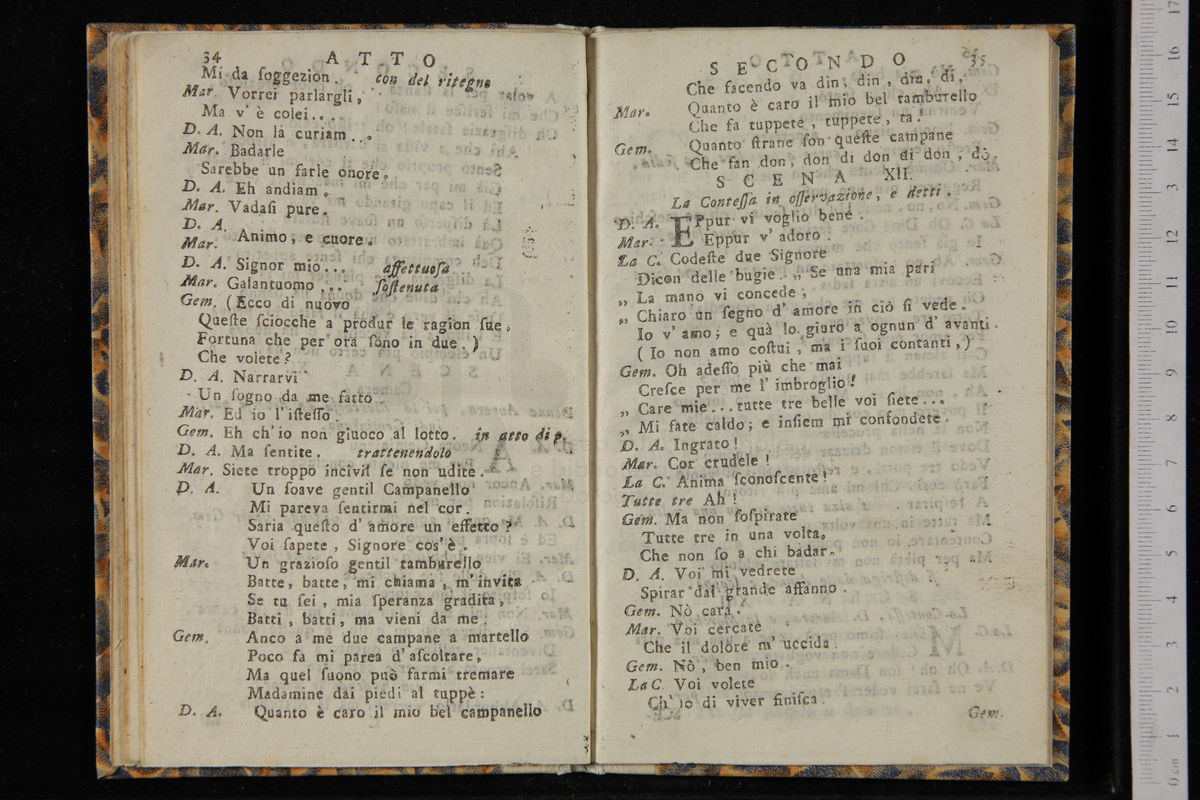 34 ATTO
Mi da ſoggezion. con del ritegno
Mar. Vorrei parlargli,
Ma v' è colei...
D. A. Non la curiam..
Mar. Badarle
Sarebbe un farle onore.
D. A. Eh andiam.
Mar. Vadaſi pure.
D. A.
Mar. Animo, e cuore.
D. A. Signor mio... affettuoſa
Mar. Galantuomo... ſoſtenuta
Gem. (Ecco di nuovo
Queſte ſciocche a produr le ragion ſue.
Fortuna che per ora ſono in due.)
Che volete?
D. A. Narrarvi
Un ſogno da me fatto.
Mar. Ed io l' iſteſſo.
Gem. Eh ch' io non giuoco al lotto. in atto di p.
D. A. Ma ſentite. trattenendolo
Mar. Siete troppo incivil ſe non udite.
D. A. Un ſoave gentil Campanello
Mi pareva ſentirmi nel cor.
Saria queſto d' amore un effetto?
Voi ſapete, Signore cos' è.
Mar. Un grazioſo gentil tamburello
Batte, batte, mi chiama, m' invita
Se tu ſei, mia ſperanza gradita,
Batti, batti, ma vieni da me.
Gem. Anco a me due campane a martello
Poco fa mi parea d' aſcoltare,
Ma quel ſuono può farmi tremare
Madamine dai piedi al tuppè:
D. A. Quanto è caro il mio bel campanello
SECONDO 35
Che facendo va din, din, din, di,
Mar. Quanto è caro il mio bel tamburello
Che fa tuppete, tuppete, ta!
Gem. Quanto ſtrane ſon queſte campane
Che fan don, don di don di don, dò.
SCENA XII.
La Conteſſa in oſſervazione, e detti.
D. A. EPpur vi voglio bene.
Mar. Eppur v' adoro.
La C. Codeſte due Signore
Dicon delle bugie. „ Se una mia pari
„ La mano vi concede,
„ Chiaro un ſegno d' amore in ciò ſi vede.
Io v' amo; e quà lo giuro a ognun d' avanti.
(Io non amo coſtui, ma i ſuoi contanti,)
Gem. Oh adeſſo più che mai
Creſce per me l' imbroglio!
„ Care mie... tutte tre belle voi ſiete...
„ Mi fate caldo; e inſiem mi confondete.
D. A. Ingrato!
Mar. Cor crudele!
La C. Anima ſconoſcente!
Tutte tre Ah!
Gem. Ma non ſoſpirate
Tutte tre in una volta,
Che non ſo a chi badar.
D. A. Voi mi vedrete
Spirar dal grande affanno.
Gem. Nò cara.
Mar. Voi cercate
Che il dolore m' uccida.
Gem. Nò, ben mio.
La C. Voi volete
Ch' io di viver finiſca.
Gem.